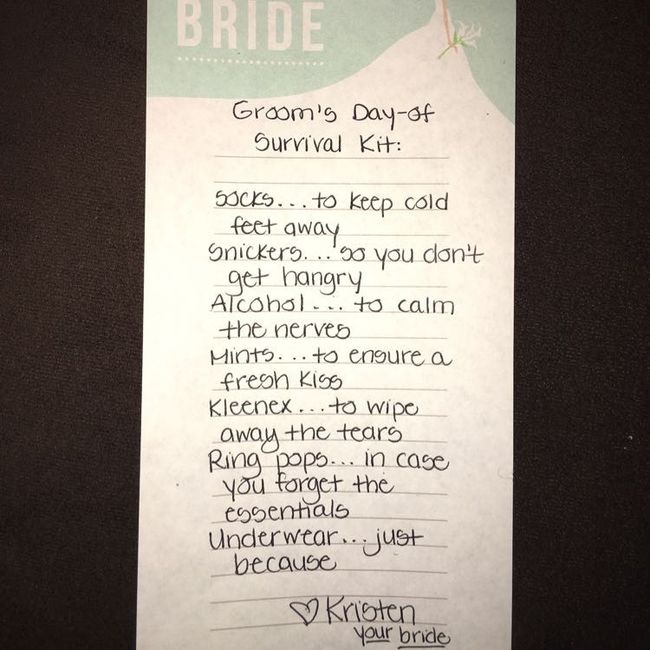 BRIDE
Groom's Day-of
Survival Kit:
Socks...to keep cold
feet away
Snickers...so you don't
get hangry
Alcohol...to calm
the nerves
Mints...to ensure a
fresh kiss
Kleenex...to wipe
away the tears
Ring pops...in case
you forget the
essentials
Underwear...just
because
♡ Kristen
your bride